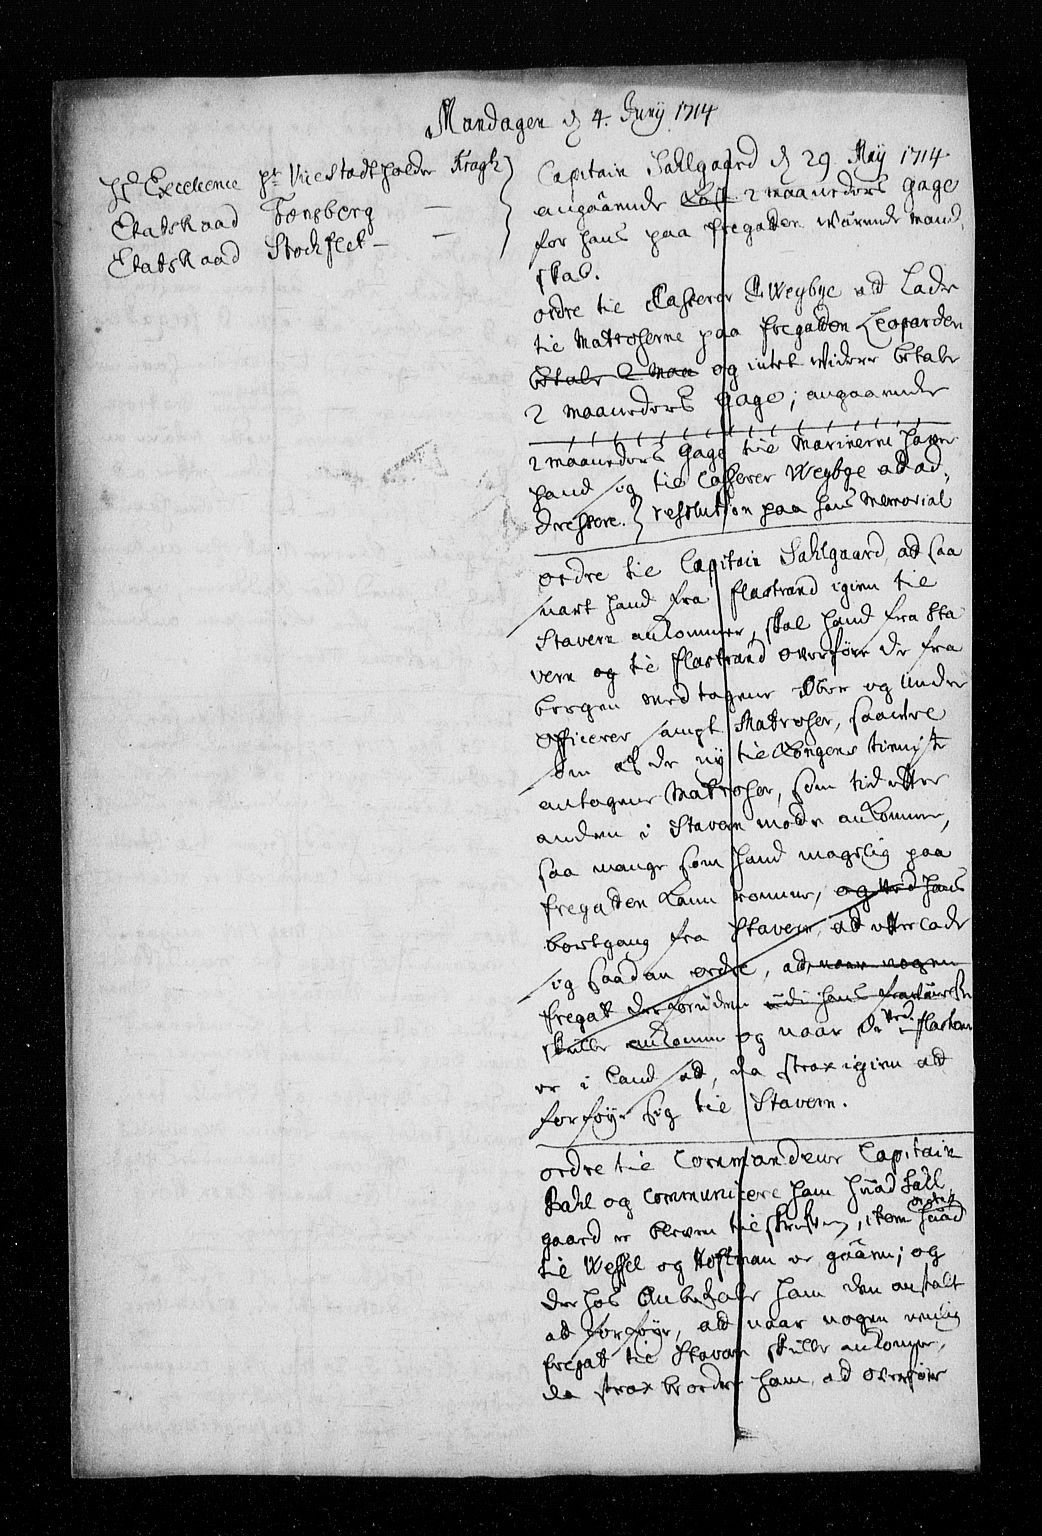 Mandagen d 4. Juny 1714
Hs Excellence Hr Vicestadtholder Kragh
Etatsraad Tonsberg —
Etatsraad Stockflet — —
Capitain Sahlgaard d 29 Maij 1714
angaaende 2 maaneders gage
for hans paa fregatten værende mand
skab.
ordre til Casserer Weybye at Lade
til Matroserne paa fregatten Leoparden
betale 2 maa og intet widere betale
2 maaneders gage; angaaende
2 maaneders gage til Marinerne hafver
hand og til Casserer Weybye at ad,
dressere. resolution paa hans Memorial
ordre til Capitain Sahlgaard, at saa
snart hand fra flastrand igien til
Stavern ankommer, skal hand fra Sta
vern og til flastrand overføre de fra
bergen medtagene Ober og Under
Officerer sampt Matroser, saavel
som af de ny til Kongens tieniste
antagene Matroser, som tid efter
anden i Stavern mode ankomme,
saa mange som hand magelig paa
fregatten kand romme, og ved hans
bortgang fra Stavern, at efterlade
og saadan ordre, at naar nogen
fregat desforuden udi hans fraværelse
skulle ankomme og naar de ved flastran
er i land sat, da strax igien at
forføye sig til Stavern.
ordre til Commandeur Capitain
Pahl og communicere ham huad Sahl
gaard er bleven tilskrefven, item huad
til Wessel og Hoffman er gaaen; og
derhos Anbefale ham den anstalt
at forføye, at naar nogen
fregat til Stavern skulle ankomme,
da strax beordre ham at overføre